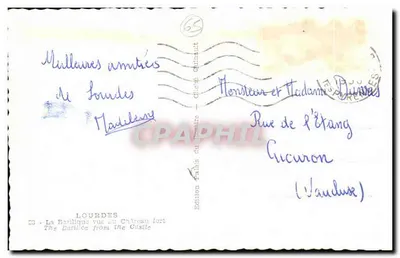 65
Meilleures amitiés
de Lourdes
Madeleine
Monsieur et Madame
Rue de l'Étang
Cucuron
(Vaucluse)
CPAPHIL
LOURDES
La Basilique vue du Château fort
The Basilica from the Castle